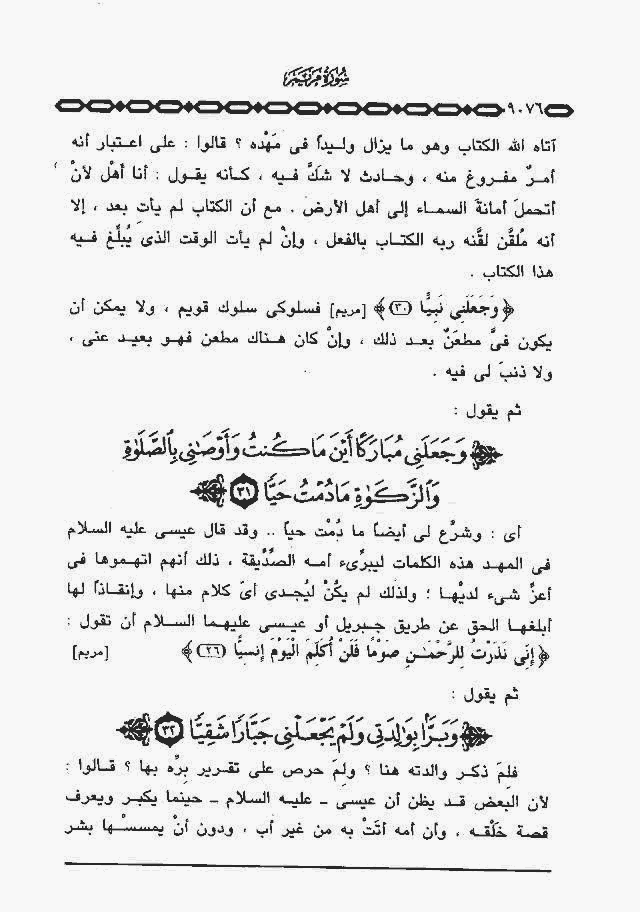 سُورَةُ مَرْيَمَ
٩٠٧٦
آتاه الله الكتاب وهو ما يزال وليداً فى مَهْده ؟ قالوا : على اعتبار أنه
أمرٌ مفروغ منه ، وحادث لا شكَّ فيه ، كأنه يقول : أنا أهْل لأنْ
أتحملَ أمانةَ السماء إلى أهل الأرض . مع أن الكتاب لم يأتِ بعد ، إلا
أنه مُلقَّن لقَّنه ربه الكتاب بالفعل ، وإنْ لم يأت الوقت الذى يُبلِّغ فيه
هذا الكتاب .
﴿ وَجَعَلَنِي نَبِيًّا (٣٠) ﴾ [مريم] فسلوكى سلوك قويم ، ولا يمكن أن
يكون فىَّ مطعَنٌ بعد ذلك ، وإنْ كان هناك مطعن فهو بعيد عنى ،
ولا ذنبَ لى فيه .
ثم يقول :
وَجَعَلَنِي مُبَارَكًا أَيْنَ مَا كُنتُ وَأَوْصَٰنِي بِٱلصَّلَوٰةِ
وَٱلزَّكَوٰةِ مَا دُمْتُ حَيًّا ٣١
أى : وشرَّع لى أيضاً ما دُمْت حياً .. وقد قال عيسى عليه السلام
فى المهد هذه الكلمات ليبرِّىء أمه الصِّدِّيقة ، ذلك أنهم اتهموها فى
أعزِّ شىء لديْها ؛ ولذلك لم يكُنْ ليُجدى أىّ كلام منها ، وإنقاذاً لها
أبلغها الحق عن طريق جبريل أو عيسى عليهما السلام أن تقول :
﴿ إِنِّي نَذَرْتُ لِلرَّحْمَٰنِ صَوْمًا فَلَنْ أُكَلِّمَ الْيَوْمَ إِنسِيًّا (٢٦) ﴾ [مريم]
ثم يقول :
وَبَرًّۢا بِوَٰلِدَتِي وَلَمْ يَجْعَلْنِي جَبَّارًا شَقِيًّا ٣٢
فلِمَ ذكر والدته هنا ؟ ولِمَ حرص على تقرير بِرِّه بها ؟ قالوا :
لأن البعض قد يظن أن عيسى - عليه السلام - حينما يكبر ويعرف
قصة خَلْقه ، وأن أمه أتَتْ به من غير أب ، ودون أنْ يمسسْها بشر